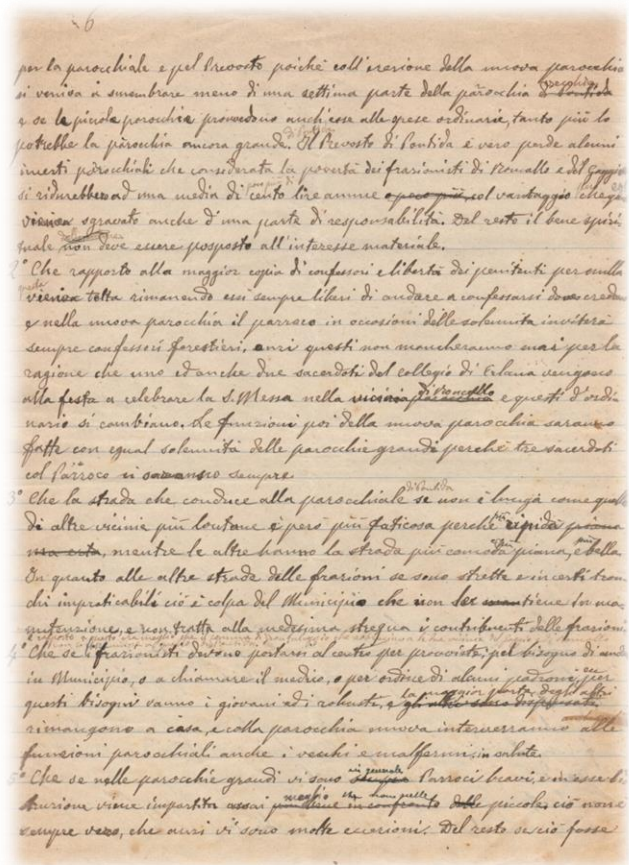 6
per la parocchiale e pel Prevosto poichè coll'erezione della nuova parocchia
si veniva a smembrare meno di una settima parte della parocchia
e se le picole parochie provvedono anch'esse alle spese ordinarie, tanto più lo
potrebbe la parochia ancora grande. Il Prevosto di Pontida è vero perde alcuni
incerti parochiali che considerata la povertà dei frazionisti di Roncallo e del Gaggio
si ridurrebbero ad una media di cento lire annue o poco più, col vantaggio che
sgravato anche d'una parte di responsabilità. Del resto il bene spiri-
tuale non deve essere posposto all'interesse materiale.
2° Che rapporto alla maggior copia di confessori e libertà dei penitenti per nulla
questa viene tolta rimanendo essi sempre liberi di andare a confessarsi dove credono
e nella nuova parochia il parroco in occasioni delle solennità inviterà
sempre confessori forestieri, anzi questi non mancheranno mai per la
ragione che uno ed anche due sacerdoti del collegio di Celana vengono
alla festa a celebrare la S. Messa nella vicinia di Roncallo e questi d'ordi-
nario si cambiano. Le funzioni poi della nuova parochia saranno
fatte con egual solennità delle parochie grandi perchè tre sacerdoti
col Parroco vi saranno sempre.
di Pontida
3° Che la strada che conduce alla parochiale se non è lunga come quelle
di altre vicinie più lontane è però più faticosa perchè ripida
mentre le altre hanno la strada più comoda piana, e bella.
In quanto alle altre strade delle frazioni se sono strette e in certi tron-
chi impraticabili ciò è colpa del Municipio che non le tiene in ma-
nutenzione, e non tratta alla medesima stregua i contribuenti delle frazioni.
4° Che se i frazionisti devono portarsi al centro per provviste, pel bisogno di andare
in Municipio, o a chiamare il medico, o per ordine di alcuni padroni, per
questi bisogni vanno i giovani ed i robusti, la maggior parte degli altri
rimangono a casa, e colla parochia nuova interverranno alle
funzioni parochiali anche i vecchi e malfermi in salute.
5° Che se nelle parochie grandi vi sono in generale Parroci bravi, e in esse l'i-
struzione viene impartita assai meglio che non nelle piccole, ciò non è
sempre vero, che anzi vi sono molte eccezioni. Del resto se ciò fosse